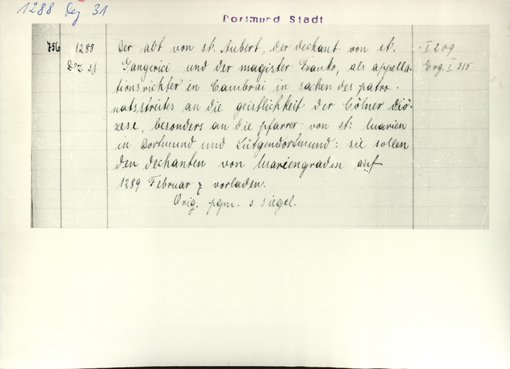 1288 Dez 31
Dortmund Stadt
756 1288 Der abt von st. Aubert, der dechant von st. I 209
Dez. 31 Gangerici und der magister Franko, als appella- Erg. I 315
tionsrichter in Cambrai in sachen des patro-
natsstreites an die geistlichkeit der Cölner Diö-
zese, besonders an die pfarrer von st. Marien
in Dortmund und Lütgendortmund: sie sollen
den dechanten von Mariengraden auf
1289 Februar 7 vorladen.
Orig. pgm. 2 siegel.